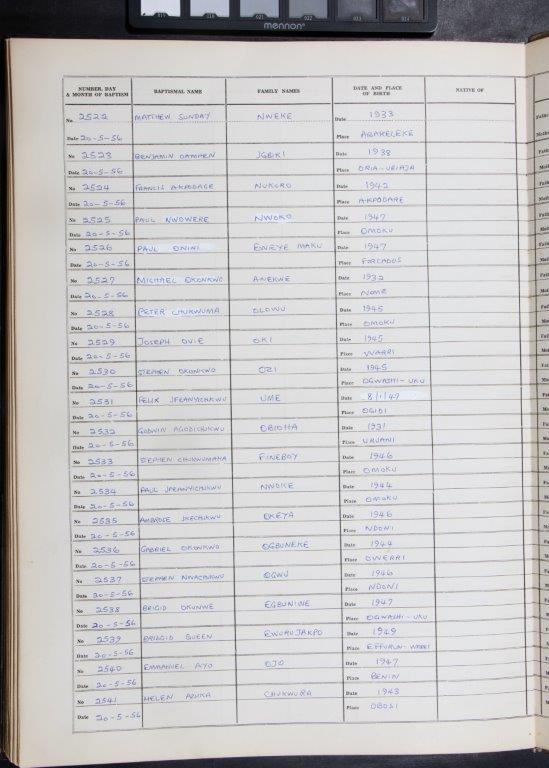 019 020 021 022 023 024
mennon
NUMBER, DAY & MONTH OF BAPTISM BAPTISMAL NAME FAMILY NAMES DATE AND PLACE OF BIRTH NATIVE OF
No 2522 MATTHEW SUNDAY NWEKE Date 1933
Date 20-5-56 Place ABAKELEKE
No 2523 BENJAMIN IGBIKI Date 1938
Date 20-5-56 Place ORIA-UBIAJA
No 2524 FRANCIS AKPODAGE NUKORO Date 1942
Date 20-5-56 Place AKPODARE
No 2525 PAUL NWOWERE NWOKO Date 1947
Date 20-5-56 Place OMOKU
No 2526 PAUL ONINI EWEYE MAKU Date 1947
Date 20-5-56 Place FORCADOS
No 2527 MICHAEL OKONKWO ANEKWE Date 1932
Date 20-5-56 Place
No 2528 PETER CHUKWUMA OLOWU Date 1945
Date 20-5-56 Place OMOKU
No 2529 JOSEPH OVIE OKI Date 1945
Date 20-5-56 Place WARRI
No 2530 STEPHEN OKONKWO OZI Date 1945
Date 20-5-56 Place OGWASHI-UKU
No 2531 FELIX IFEANYICHUKWU UME Date 8/1/47
Date 20-5-56 Place OGIDI
No 2532 GODWIN AGODICHUKWU OBIOHA Date 1931
Date 20-5-56 Place URUANI
No 2533 STEPHEN CHUKWUMAHA FINEBOY Date 1946
Date 20-5-56 Place OMOKU
No 2534 PAUL IFEANYICHUKWU NWOKE Date 1944
Date 20-5-56 Place OMOKU
No 2535 AMBROSE IKECHUKWU OKEYA Date 1946
Date 20-5-56 Place NDONI
No 2536 GABRIEL OKONKWO OGBUNEKE Date 1944
Date 20-5-56 Place OWERRI
No 2537 STEPHEN NWACHUKWU OGWU Date 1946
Date 20-5-56 Place NDONI
No 2538 BRIGID OKUNWE EGBUNIWE Date 1947
Date 20-5-56 Place OGWASHI-UKU
No 2539 BRIDGID QUEEN EWURUJAKPO Date 1949
Date 20-5-56 Place EFFURUN-WARRI
No 2540 EMMANUEL AYO OJO Date 1947
Date 20-5-56 Place BENIN
No 2541 HELEN AZUKA CHUKWURA Date 1943
Date 20-5-56 Place OBOSI